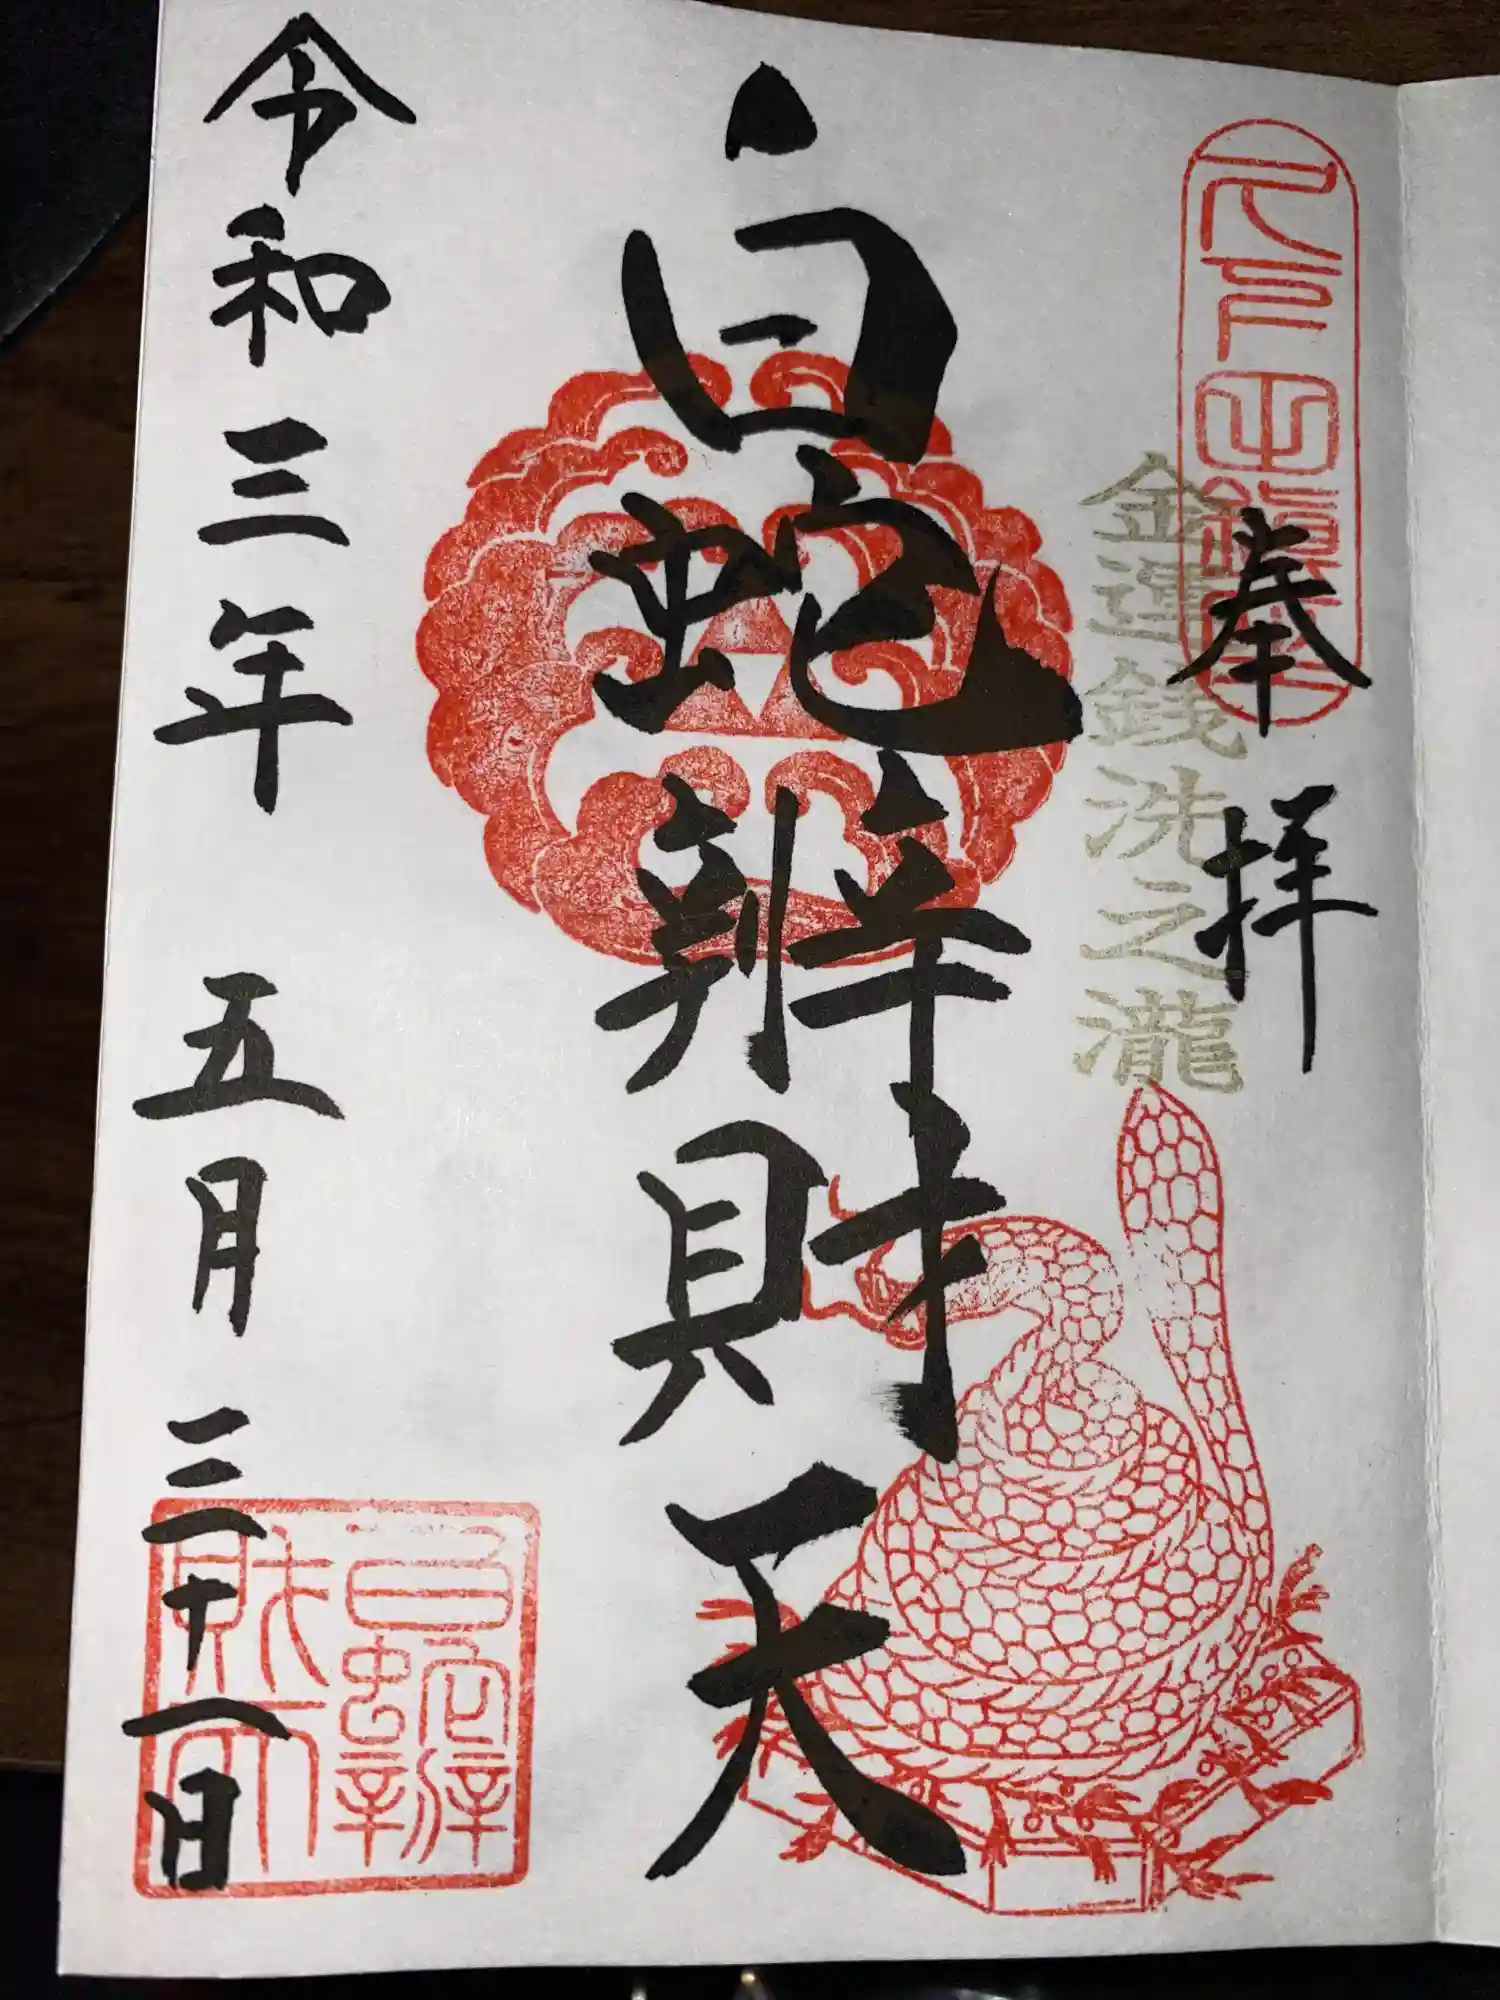 奉拝
金運銭洗之瀧
白蛇辨財天
令和三年五月三十一日
白蛇辨
財天